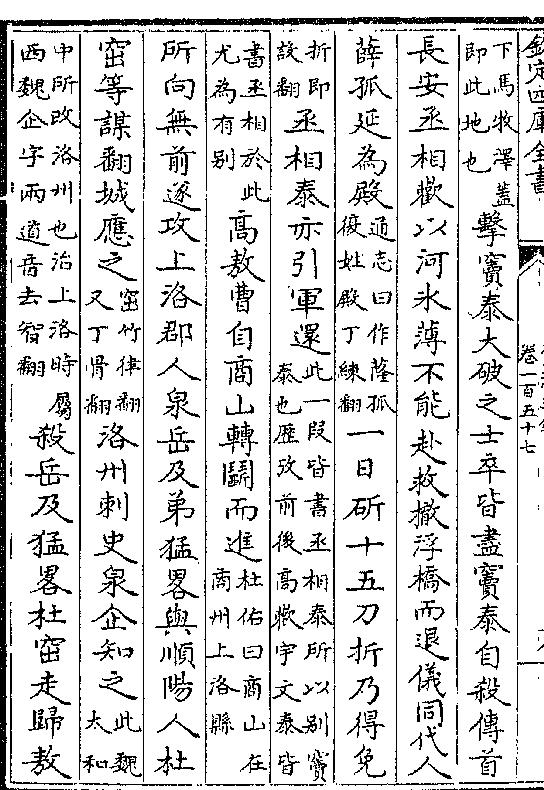 欽定四庫全書
卷一百五十七
下馬牧澤蓋即此地也擊竇泰大破之士卒皆盡竇泰自殺傳首
長安丞相歡以河氷薄不能赴救撤浮橋而退儀同代人
薛孤延為殿通志曰作薩孤復姓殿丁練翻一日斫十五刀折乃得免
折即設翻丞相泰亦引軍還此一段皆書丞相泰所以别竇泰也歷攷前後高歡宇文泰皆
書丞相於此尤為有别高敖曹自商山轉鬬而進杜佑曰商山在商州上洛縣
所向無前遂攻上洛郡人泉岳及弟猛畧與順陽人杜
窋等謀翻城應之窋竹律翻又丁骨翻洛州刺史泉企知之此魏太和
中所改洛州也治上洛時屬西魏企字兩道音去智翻殺岳及猛畧杜窋走歸敖